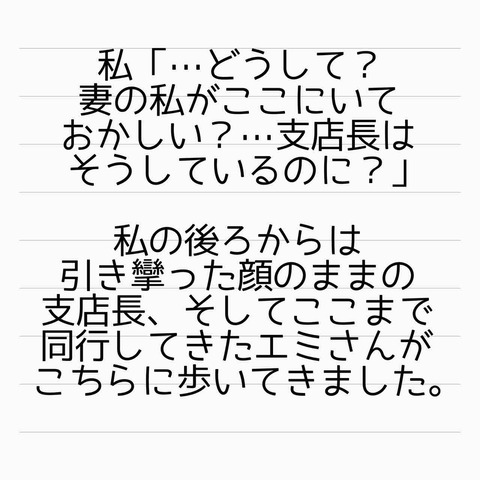 私「…どうして？
妻の私がここにいて
おかしい？…支店長は
そうしているのに？」
私の後ろからは
引き攣った顔のままの
支店長、そしてここまで
同行してきたエミさんが
こちらに歩いてきました。